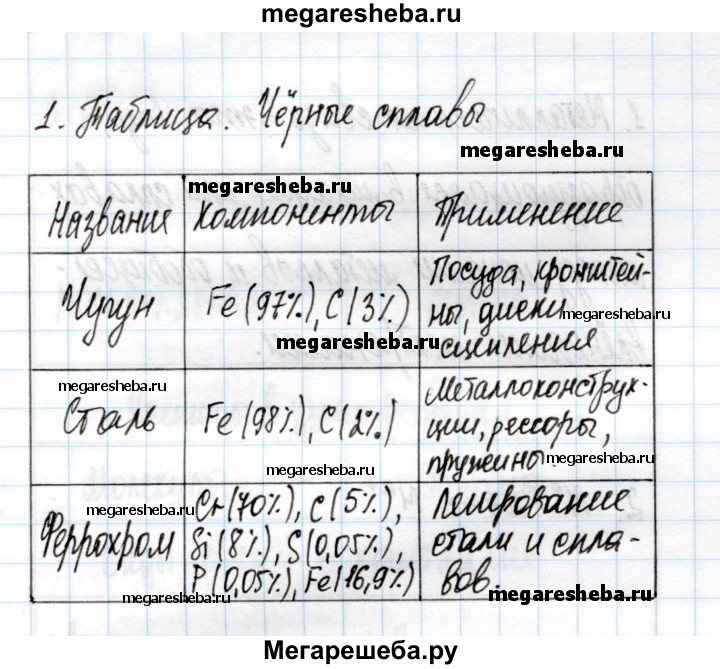 megaresheba.ru
1. Таблица. Чёрные сплавы
megaresheba.ru
megaresheba.ru
Название Компоненты Применение
Чугун Fe (97%), C (3%) Посуда, кронштей-
ны, диски
megaresheba.ru
сцепления
megaresheba.ru
megaresheba.ru
Сталь Fe (98%), C (2%) Металлоконструк-
ции, рессоры,
пружины.
megaresheba.ru
megaresheba.ru
Феррохром Cr (70%), C (5%),
Si (8%), S (0,05%),
P (0,05%), Fe (16,9%)
Легирование
стали и спла-
вов.
megaresheba.ru
megaresheba.ru
megaresheba.ru
Мегарешеба.ру